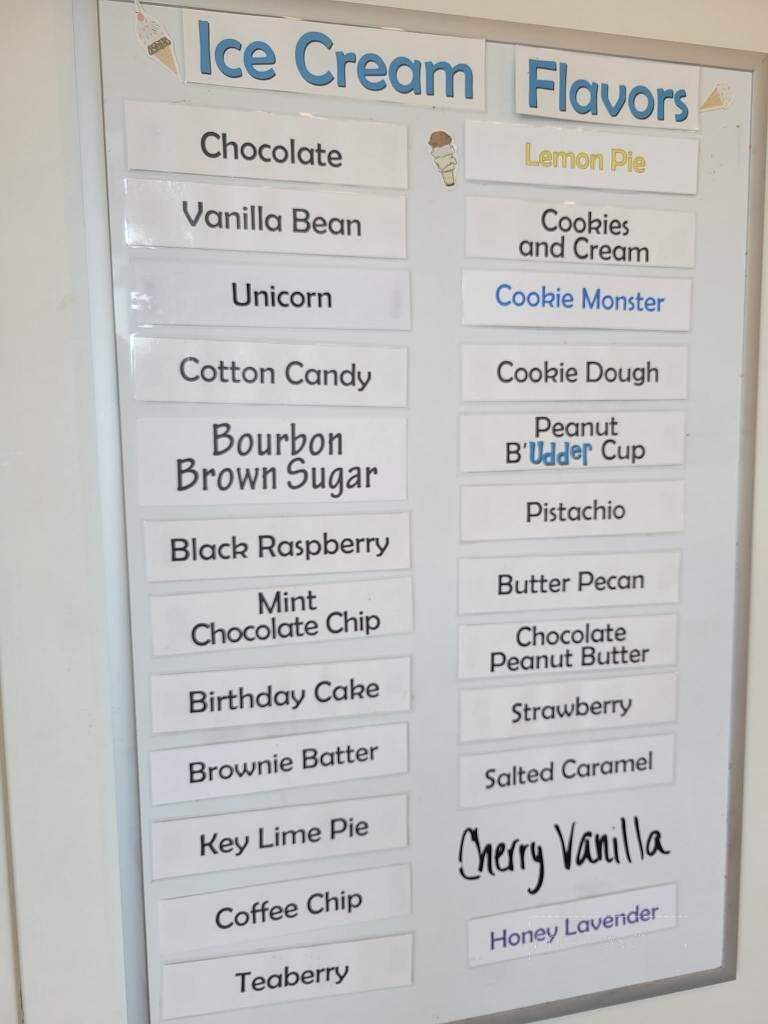 Ice Cream Flavors
Chocolate
Vanilla Bean
Unicorn
Cotton Candy
Bourbon
Brown Sugar
Black Raspberry
Mint
Chocolate Chip
Birthday Cake
Brownie Batter
Key Lime Pie
Coffee Chip
Teaberry
Lemon Pie
Cookies
and Cream
Cookie Monster
Cookie Dough
Peanut
B'Udder Cup
Pistachio
Butter Pecan
Chocolate
Peanut Butter
Strawberry
Salted Caramel
Cherry Vanilla
Honey Lavender